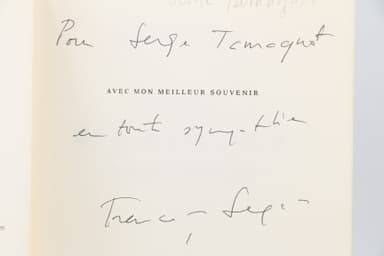 Pour Serge Tamagnot
AVEC MON MEILLEUR SOUVENIR
en toute sympathie